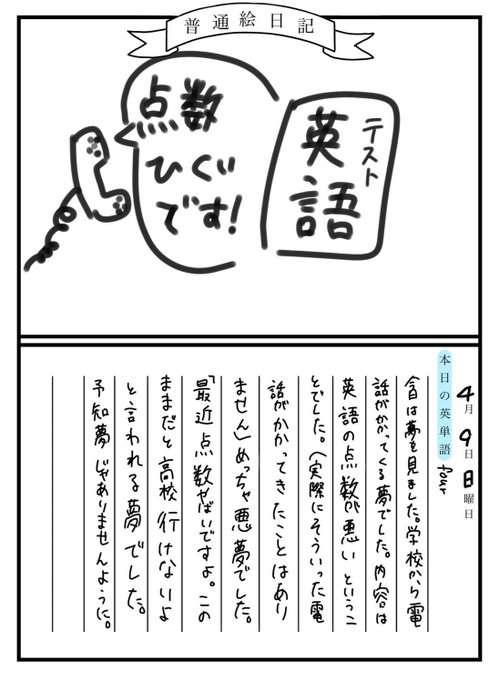 普通絵日記
点数
ひくい
です!
テスト
英語
4月9日日曜日
本日の英単語 four
今日は夢を見ました。学校から電
話がかかってくる夢でした。内容は
英語の点数が悪いというこ
とでした。(実際にそういった電
話がかかってきたことはあり
ません)めっちゃ悪夢でした。
「最近点数やばいですよ。この
ままだと高校行けないよ
と言われる夢でした。
予知夢じゃありませんように。